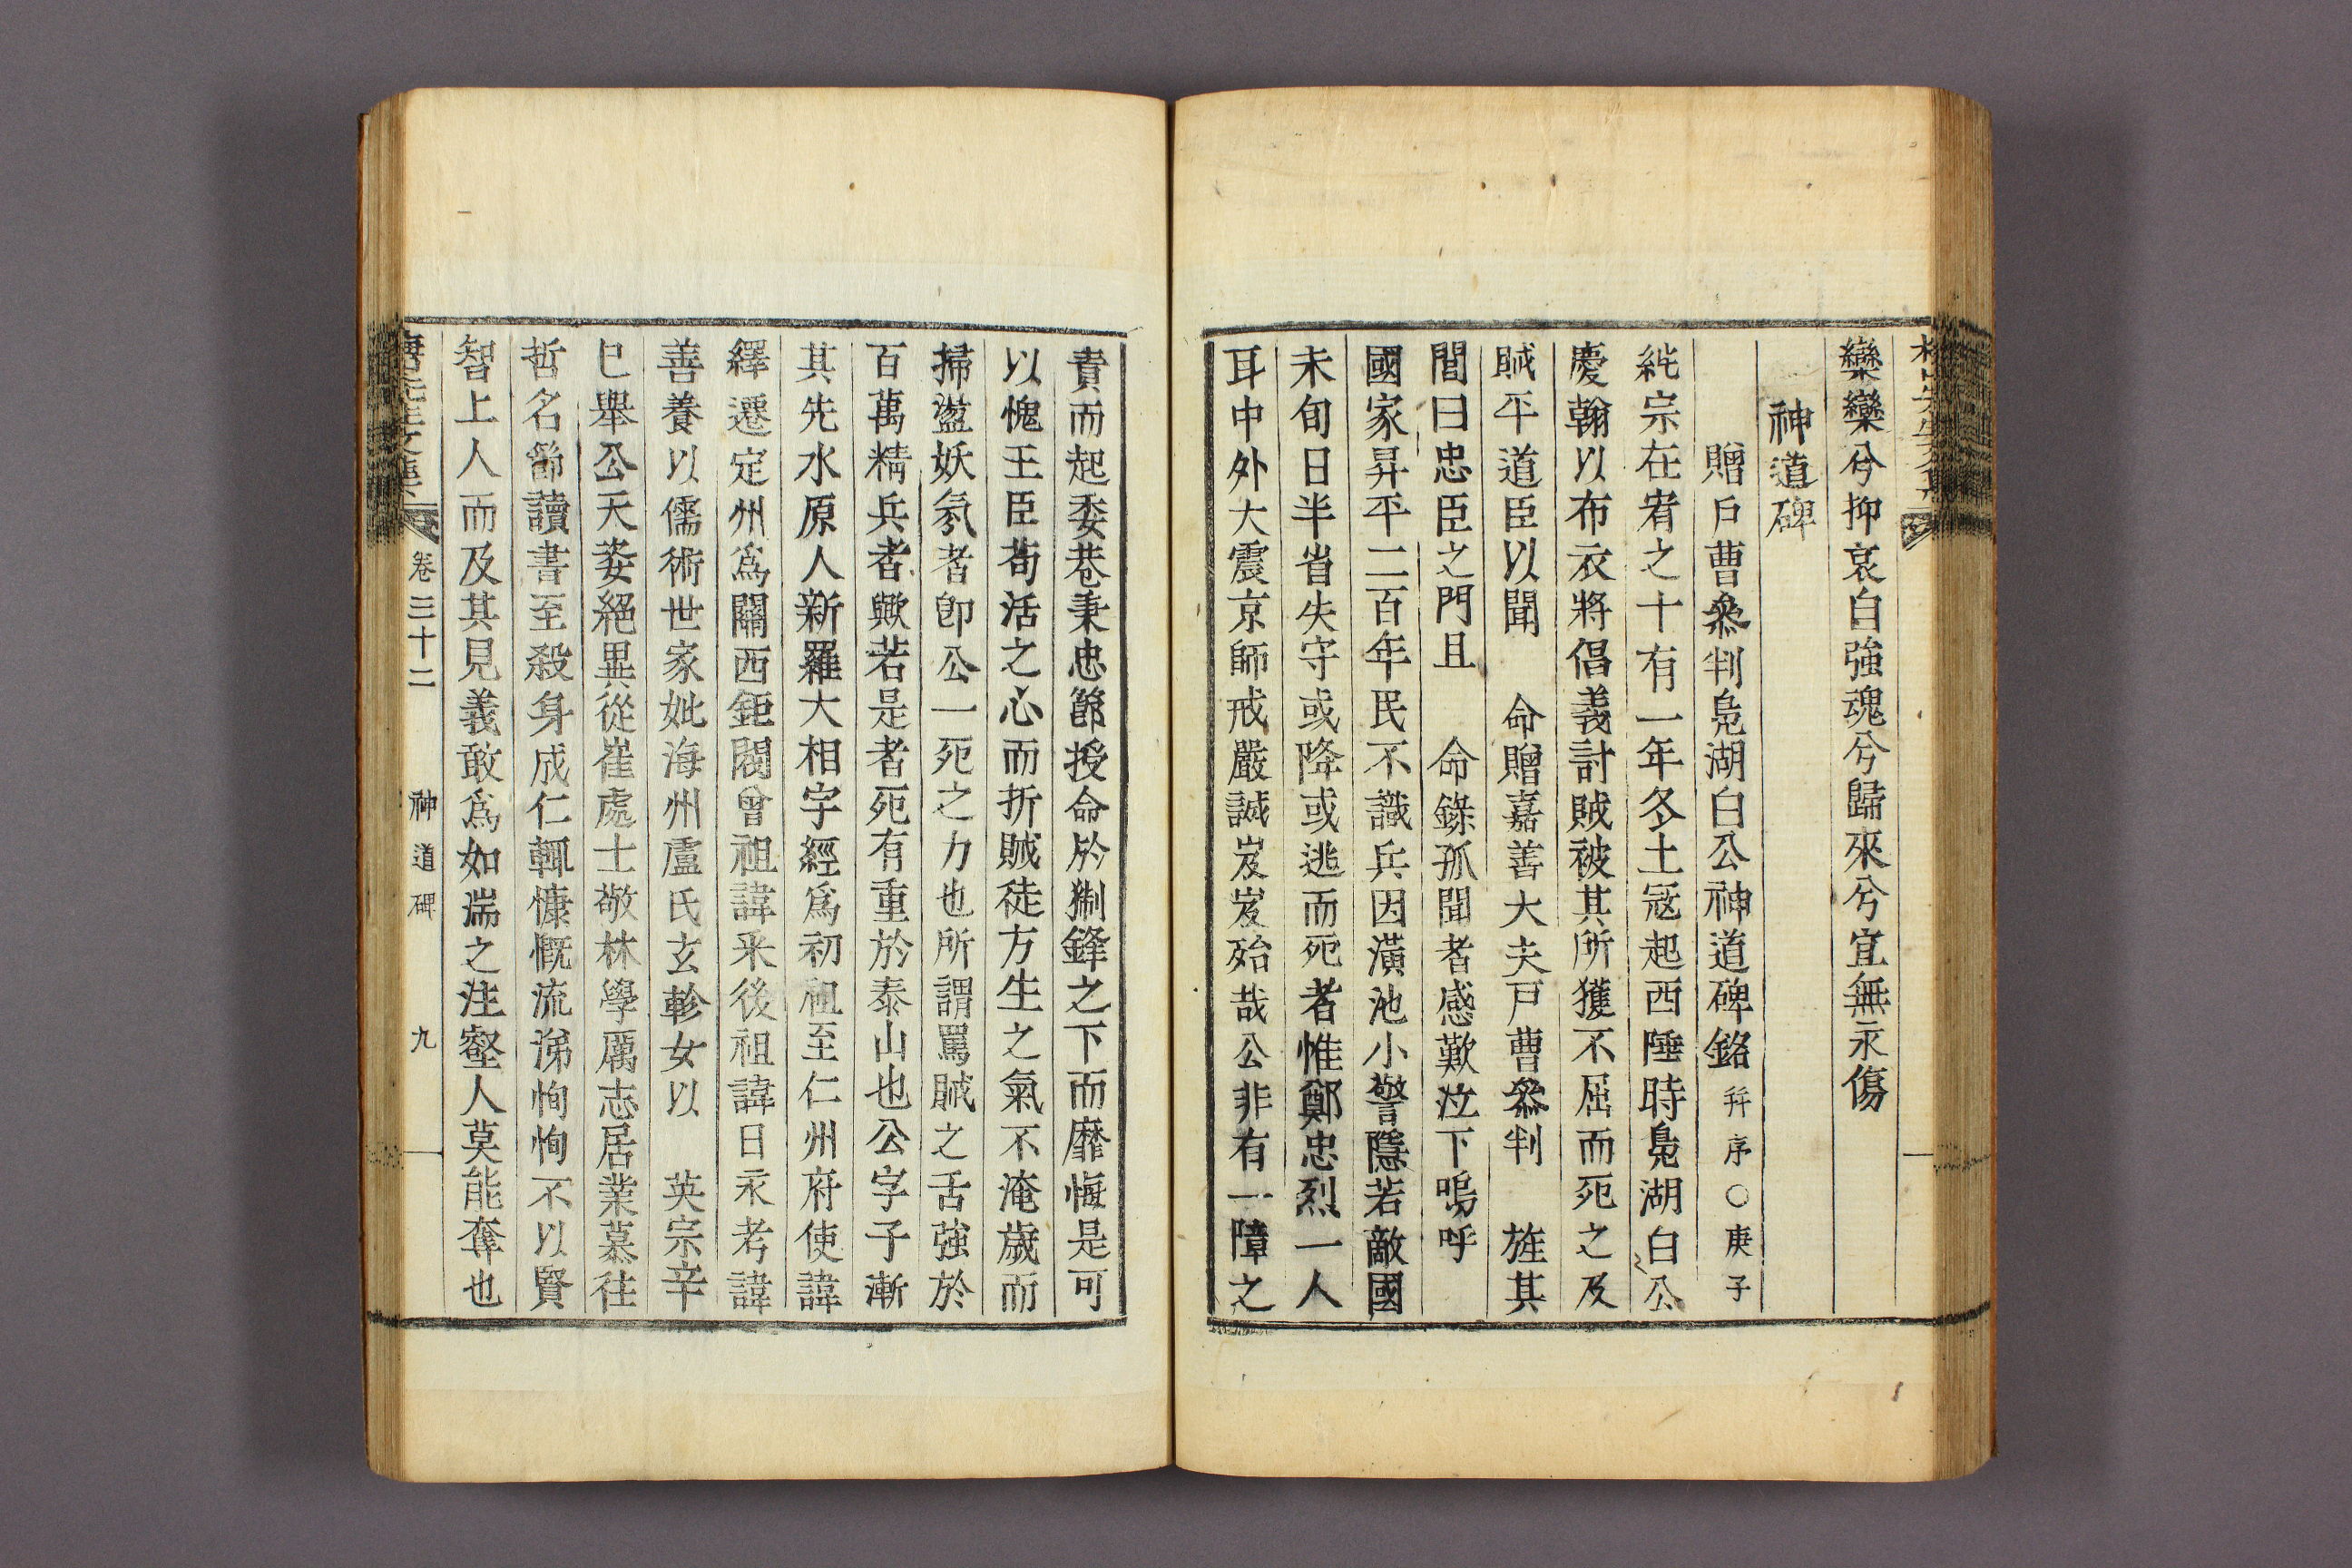 欒欒兮抑哀白強魂兮歸來兮宜無永傷
神道碑
贈戶曹叅判鳧湖白公神道碑銘 幷序○庚子
純宗在宥之十有一年冬土冦起西陲時鳧湖白公
慶翰以布衣將倡義討賊被其所獲不屈而死之及
賊平道臣以聞 命贈嘉善大夫戶曹叅判 旌其
閭曰忠臣之門且 命錄孤聞者感歎泣下嗚呼
國家昇平二百年民不識兵因潢池小警隱若敵國
未旬日半省失守或降或逃而死者惟鄭忠烈一人
耳中外大震京師戒嚴誠岌岌殆哉公非有一障之
責而起委巷秉忠節授命於猘鋒之下而靡悔是可
以愧王臣苟活之心而折賊徒方生之氣不淹歲而
掃盪妖氛者卽公一死之力也所謂罵賊之舌強於
百萬精兵者歟若是者死有重於泰山也公字子漸
其先水原人新羅大相宇經爲初祖至仁州府使諱
繹遷定州爲關西鉅閥曾祖諱釆後祖諱日永考諱
善養以儒術世家妣海州盧氏玄軫女以 英宗辛
巳舉公天姿絕異從崔處士敬林學厲志居業慕往
哲名節讀書至殺身成仁輒慷慨流涕恂恂不以賢
智上人而及其見義敢爲如湍之注壑人莫能奪也
卷三十二 神道碑 九